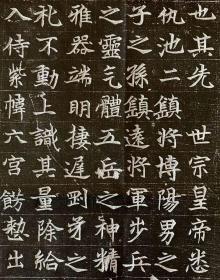 也其先　世宗皇帝悉
仇池二鎮將博陽男之
子之孫鎮遠將軍步兵
之靈气體五岳之神精
雅器端明棲遲剛矛之
礼不動上識其量除給
入侍紫幃六宮餝懃出